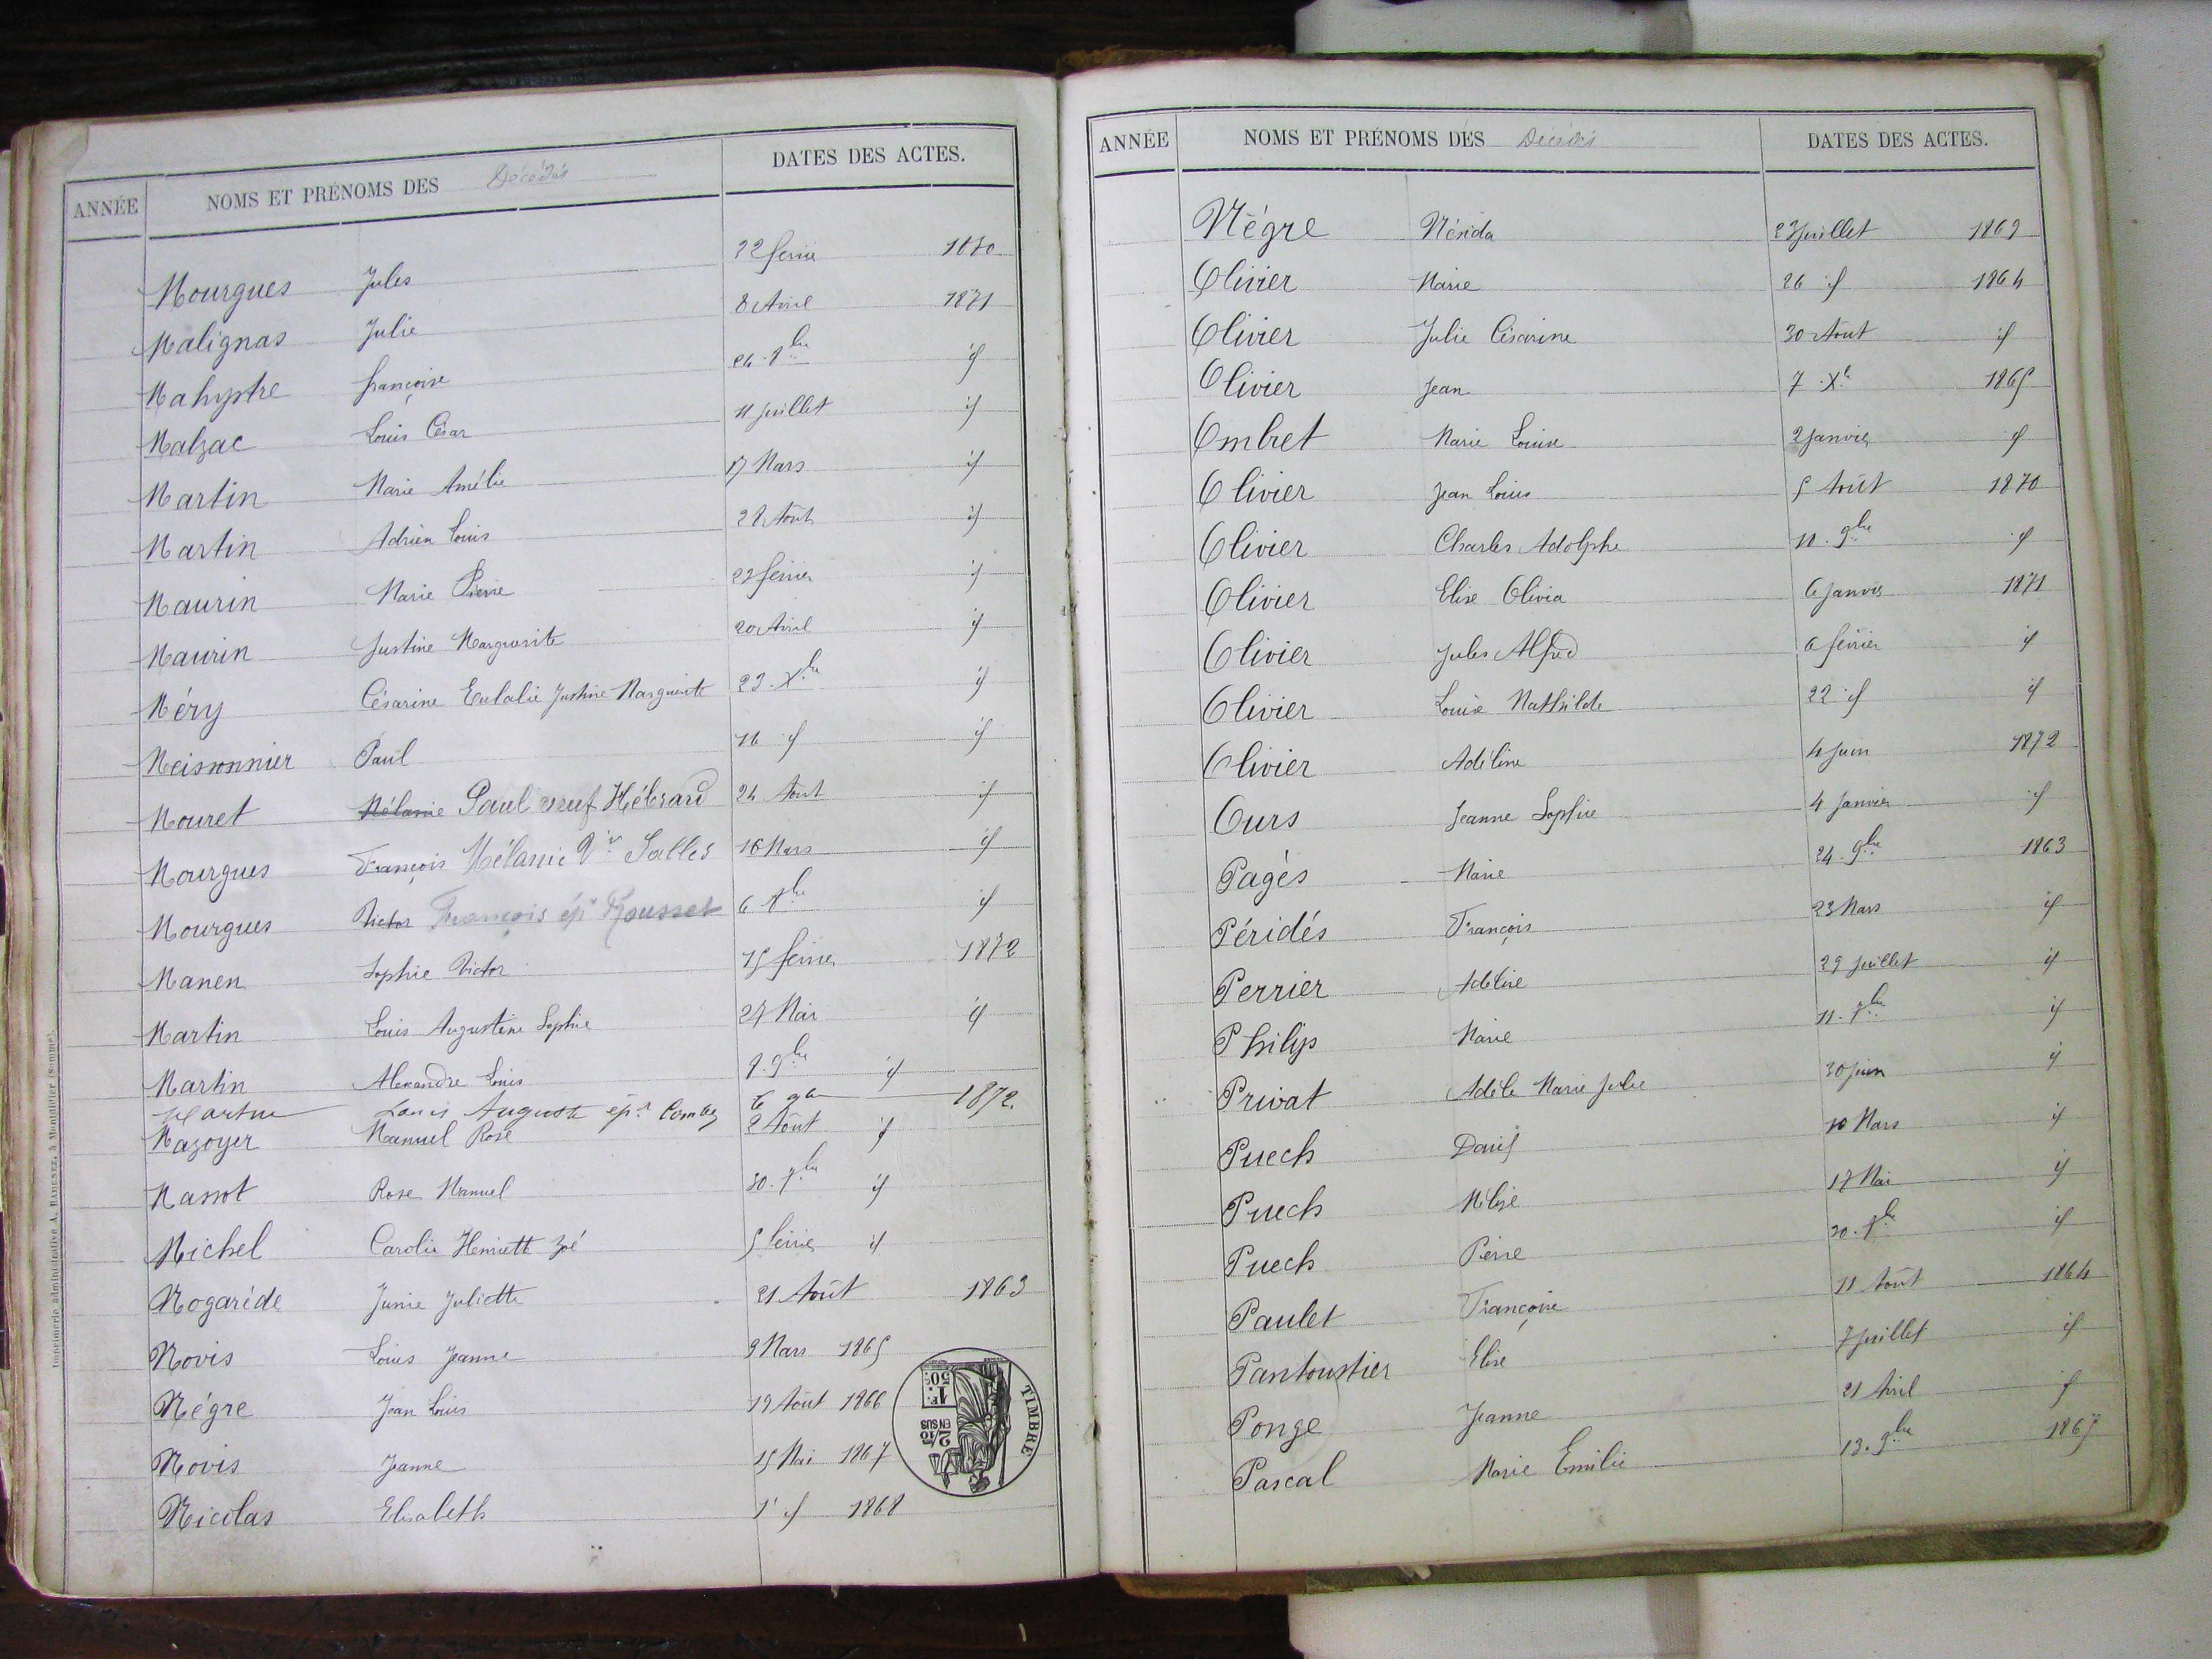 ANNÉE NOMS ET PRÉNOMS DES Décédés DATES DES ACTES.
Mourgues Jules 22 février 1870
Malignas Julie 8 Avril 1871
Mahystre françoise 24 . 8bre id
Malzac Louis César 11 juillet id
Martin Marie Amélie 17 Mars id
Martin Adrien Louis 28 Août id
Maurin Marie Pierre 22 février id
Maurin Justine Marguerite 20 Avril id
Méry Césarine Eulalie Justine Marguerite 23 . Xbre id
Meissonnier Paul 16 id id
Mouret Mélanie Paul veuf Hébrard 24 Août id
Mourgues François Mélanie Vve Salles 16 Mars id
Mourgues Victor François épx Rousset 6 . 8bre id
Manen Sophie Victor 15 février 1872
Martin Louis Augustine Sophie 24 Mai id
Martin Alexandre Louis 9 . 9bre id
Martin Louis Auguste épx Combes 6 9bre 1872.
Mazoyer Manuel Rose 2 Août id
Massot Rose Manuel 30 . 7bre id
Michel Carolie Henriette Zoé 5 février id
Nogaréde Junie Juliette 21 Août 1863
Novis Louis Jeanne 9 Mars 1865
Négre Jean Louis 19 Août 1866
Novis Jeanne 15 Mai 1867
Nicolas Elisabeth 1r id 1868
TIMBRE
1F. 50c
2/10 EN SUS
Imprimerie administrative A. RADENEZ, à Montdidier (Somme).
ANNÉE NOMS ET PRÉNOMS DES Décédés DATES DES ACTES.
Négre Nérida 23 juillet 1869
Olivier Marie 26 id 1864
Olivier Julie Césarine 30 Août id
Olivier Jean 7 . Xbre 1865
Ombret Marie Louise 2 janvier id
Olivier Jean Louis 5 Août 1870
Olivier Charles Adolphe 11 . 9bre id
Olivier Elise Olivia 6 janvier 1871
Olivier Jules Alfred 6 février id
Olivier Louise Mathilde 22 id id
Olivier Adéline 4 juin 1872
Ours Jeanne Sophie 4 janvier id
Pagés Marie 24 . 9bre 1863
Péridés François 23 Mars id
Perrier Adéline 29 juillet id
Philip Marie 11 . 7bre id
Privat Adéle Marie Julie 30 juin id
Puech David 10 Mars id
Puech Mélise 17 Mai id
Puech Pierre 30 . 8bre id
Paulet Françoise 11 Août 1864
Pantoustier Elise 7 juillet id
Ponge Jeanne 21 Avril id
Pascal Marie Emilie 13 . 9bre 1865